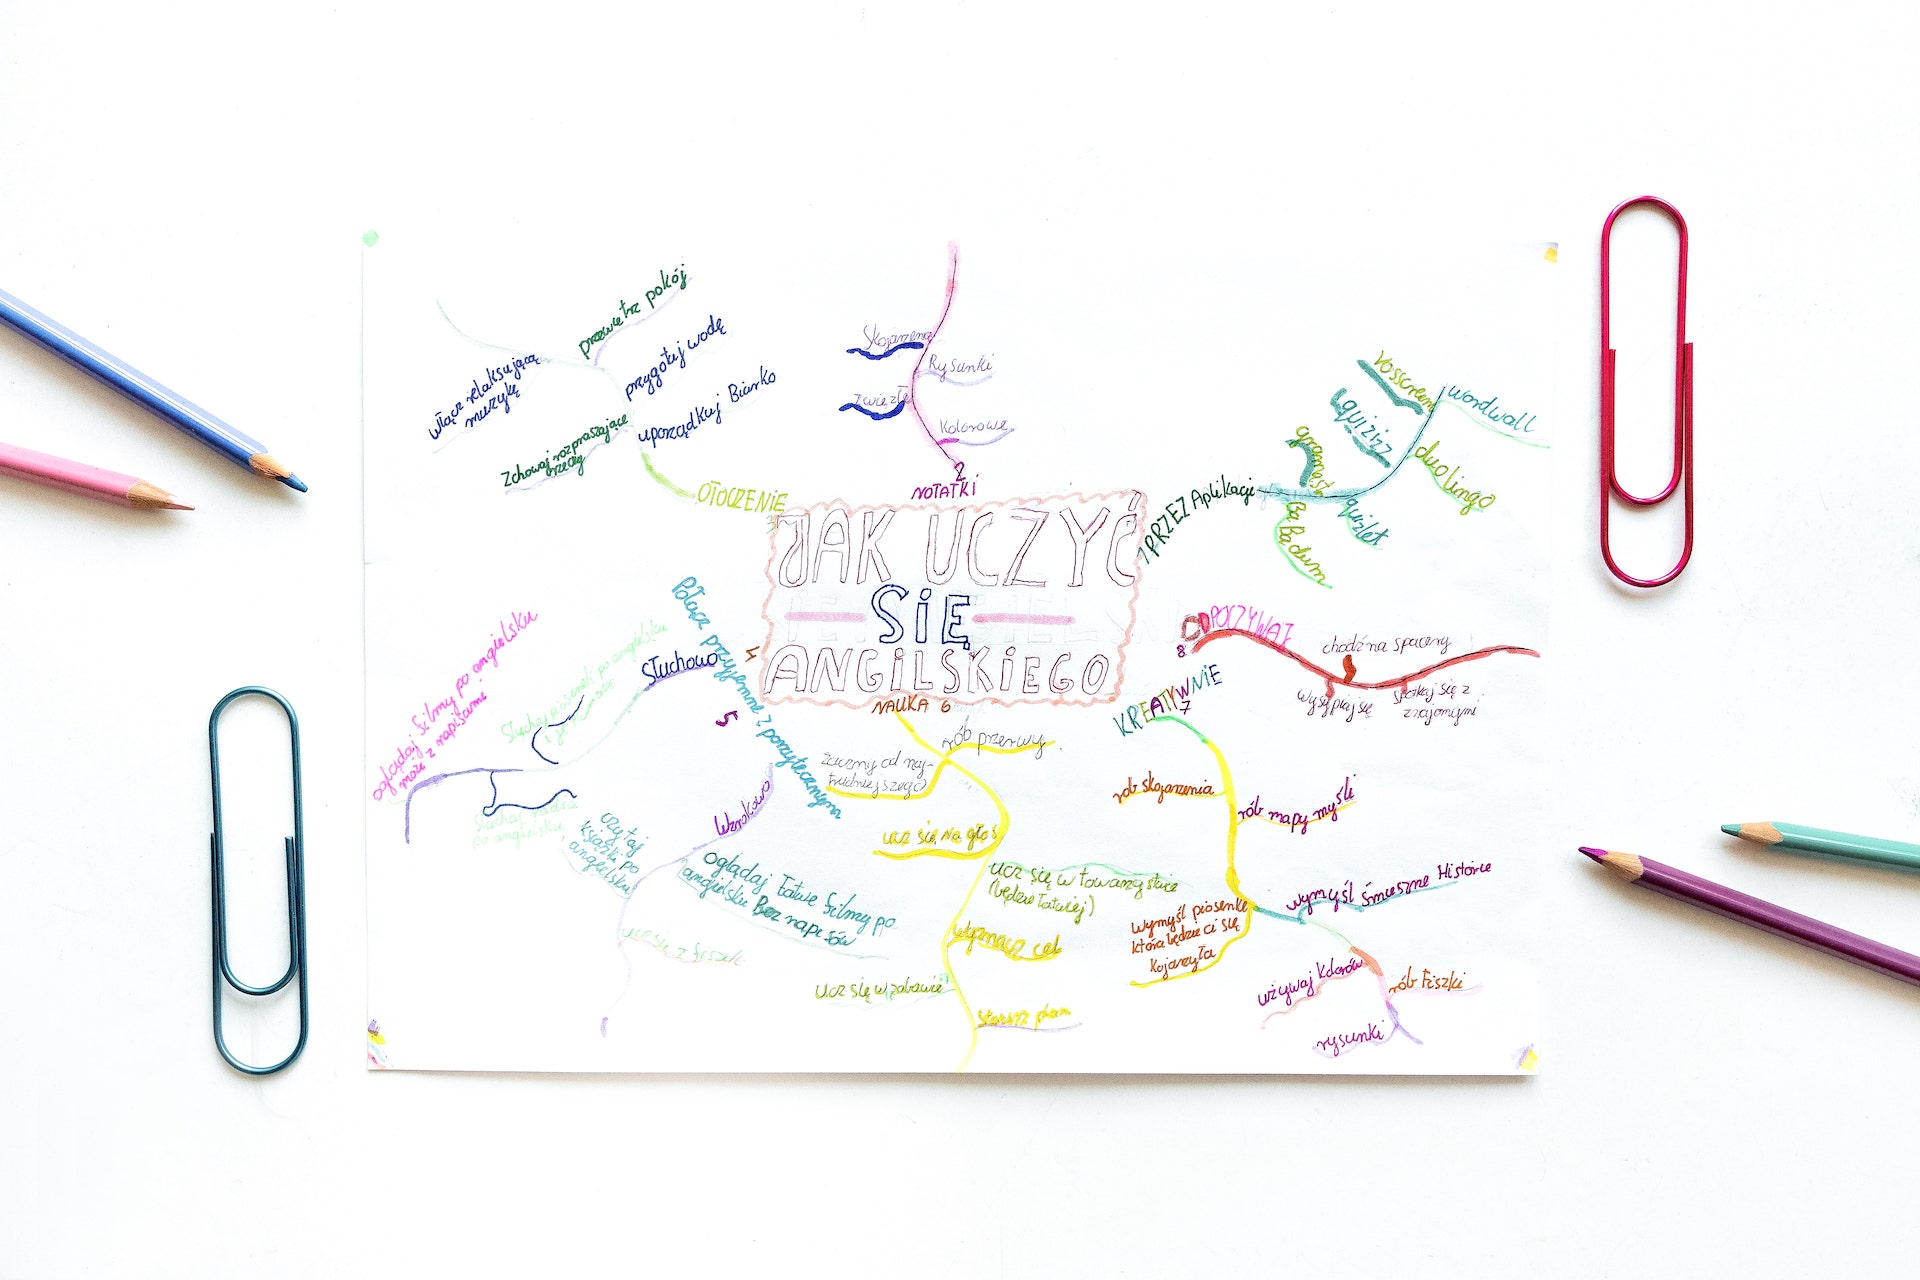 JAK UCZYĆ
SIĘ
ANGILSKIEGO
PRZEZ Aplikacje
wordwall
Vosscreen
duolingo
quizizz
quizlet
Ba Ba dum
2
NOTATKI
Skojarzenia
Rysunki
Zwięzłe
Kolorowe
3
OTOCZENIE
przewietrz pokój
przygotuj wodę
uporządkuj Biurko
włącz relaksującą
muzykę
Zchowaj rozpraszające
rzeczy
4
Połącz przyjemne z pożytecznym
5
Słuchowo
oglądaj filmy po angielsku
może z napisami
Słuchaj piosenek po angielsku
Słuchaj radia
po angielsku
Wzrokowo
czytaj
książki po
angielsku
oglądaj łatwe filmy po
angielsku Bez napisów
ucz się z fiszek
NAUKA 6
rób przerwy
Zaczny od naj-
trudniejszego
ucz się na głos
ucz się w towarzystwie
(będzie łatwiej)
wyznacz cel
ucz się w zabawie
stwórz plan
KREATYWNIE
7
rób skojarzenia
rób mapy myśli
wymyśl śmieszne Historie
Wymyśl piosenkę
która będzie ci się
kojarzyła
używaj Kolorów
rób fiszki
rysunki
8
ODPOCZYWAJ
chodź na spacery
wysypiaj się
spotkaj się z
znajomymi